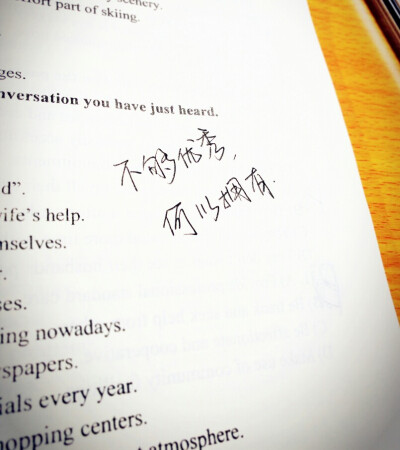 part of skiing.
ges.
nversation you have just heard.
不够优秀,
何以拥有.
d”.
ife's help.
mselves.
r.
ses.
ing nowadays.
wspapers.
ials every year.
hopping centers.
atmosphere.